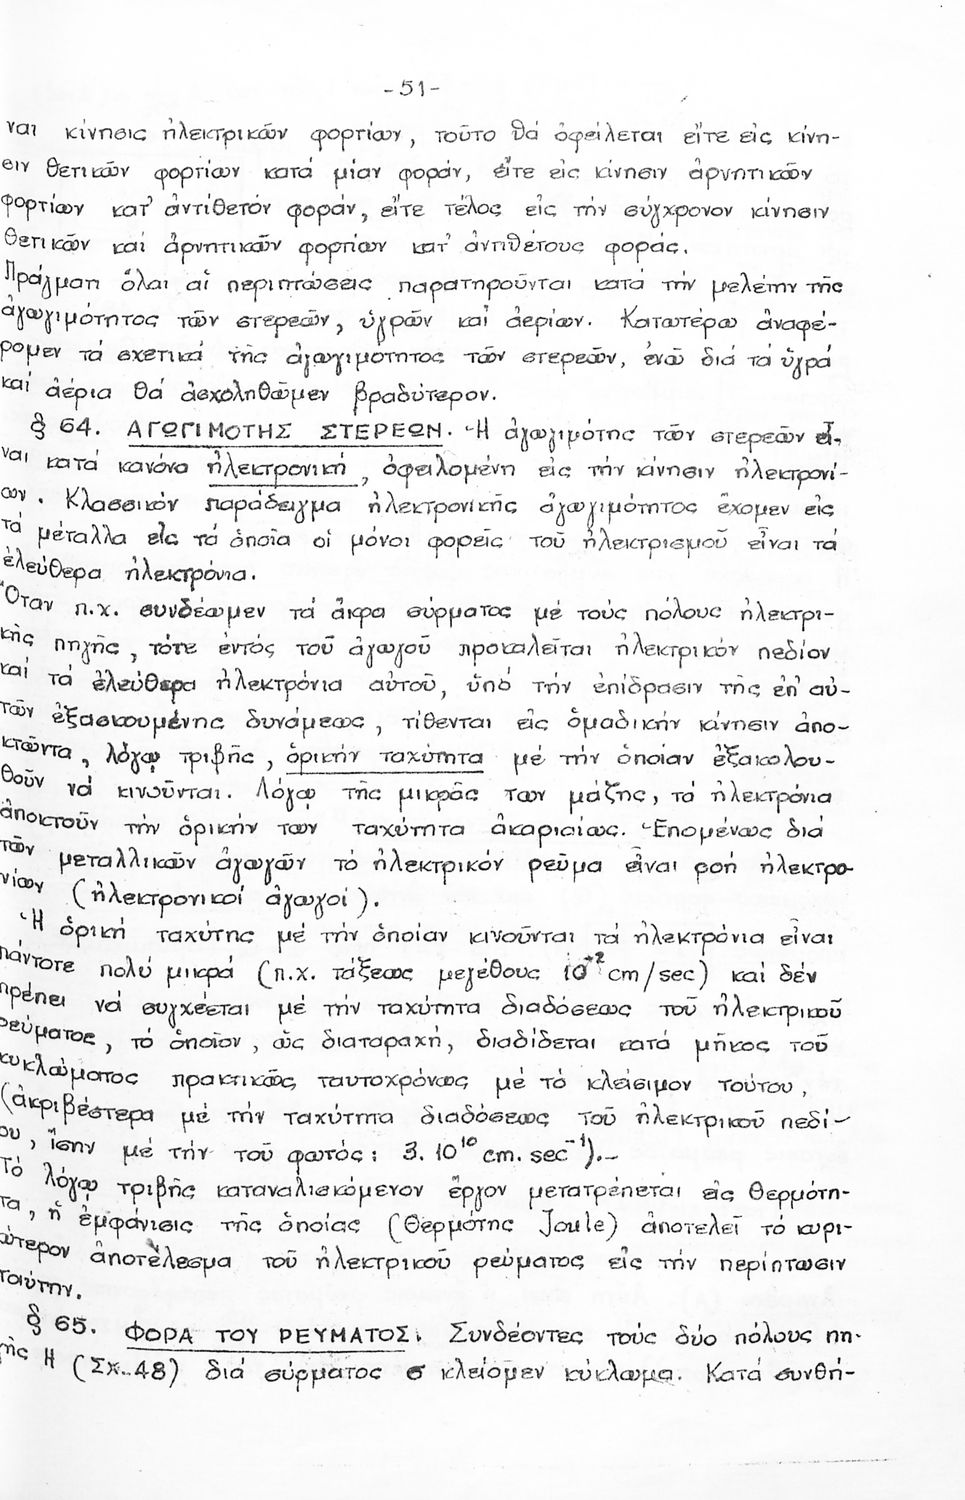 -51-
ναι κίνησις ἠλεκτρικῶν φορτίων, τοῦτο θά ὀφείλεται εἴτε εἰς κίνη-
σιν θετικῶν φορτίων κατά μίαν φοράν, εἴτε εἰς κίνησιν ἀρνητικῶν
φορτίων κατ' ἀντίθετόν φοράν, εἴτε τέλος εἰς τήν σύγχρονον κίνησιν
θετικῶν καί ἀρνητικῶν φορτίων κατ' ἀντιθέτους φοράς.
Πράγματι ὅλαι αἱ περιπτώσεις παρατηροῦνται κατά τήν μελέτην τῆς
ἀγωγιμότητος τῶν στερεῶν, ὑγρῶν καί ἀερίων. Κατωτέρω ἀναφέ-
ρομεν τά σχετικά τῆς ἀγωγιμότητος τῶν στερεῶν, ἐνῶ διά τά ὑγρά
καί ἀέρια θά ἀσχοληθῶμεν βραδύτερον.
§ 64. ΑΓΩΓΙΜΟΤΗΣ ΣΤΕΡΕΩΝ. Ἡ ἀγωγιμότης τῶν στερεῶν εἶ-
ναι κατά κανόνα ἠλεκτρονική, ὀφειλομένη εἰς τήν κίνησιν ἠλεκτρονί-
ων. Κλασσικόν παράδειγμα ἠλεκτρονικῆς ἀγωγιμότητος ἔχομεν εἰς
τά μέταλλα εἰς τά ὁποῖα οἱ μόνοι φορεῖς τοῦ ἠλεκτρισμοῦ εἶναι τά
ἐλεύθερα ἠλεκτρόνια.
Ὅταν π.χ. συνδέωμεν τά ἄκρα σύρματος μέ τούς πόλους ἠλεκτρι-
κῆς πηγῆς, τότε ἐντός τοῦ ἀγωγοῦ προκαλεῖται ἠλεκτρικόν πεδίον
καί τά ἐλεύθερα ἠλεκτρόνια αὐτοῦ, ὑπό τήν ἐπίδρασιν τῆς ἐπ' αὐ-
τῶν ἐξασκουμένης δυνάμεως, τίθενται εἰς ὁμαδικήν κίνησιν ἀπο-
κτῶντα, λόγῳ τριβῆς, ὁρικήν ταχύτητα μέ τήν ὁποίαν ἐξακολου-
θοῦν νά κινοῦνται. Λόγῳ τῆς μικρᾶς των μάζης, τά ἠλεκτρόνια
ἀποκτοῦν τήν ὁρικήν των ταχύτητα ἀκαριαίως. Ἑπομένως διά
τῶν μεταλλικῶν ἀγωγῶν τό ἠλεκτρικόν ρεῦμα εἶναι ροή ἠλεκτρο-
νίων (ἠλεκτρονικοί ἀγωγοί).
Ἡ ὁρική ταχύτης μέ τήν ὁποίαν κινοῦνται τά ἠλεκτρόνια εἶναι
πάντοτε πολύ μικρά (π.χ. τάξεως μεγέθους 10⁻² cm/sec) καί δέν
πρέπει νά συγχέεται μέ τήν ταχύτητα διαδόσεως τοῦ ἠλεκτρικοῦ
ρεύματος, τό ὁποῖον, ὡς διαταραχή, διαδίδεται κατά μῆκος τοῦ
κυκλώματος πρακτικῶς ταυτοχρόνως μέ τό κλείσιμον τούτου,
(ἀκριβέστερα μέ τήν ταχύτητα διαδόσεως τοῦ ἠλεκτρικοῦ πεδί-
ου, ἴσην μέ τήν τοῦ φωτός: 3.10¹⁰ cm.sec⁻¹).-
Τό λόγῳ τριβῆς καταναλισκόμενον ἔργον μετατρέπεται εἰς θερμότη-
τα, ἡ ἐμφάνισις τῆς ὁποίας (θερμότης Joule) ἀποτελεῖ τό κυρι-
ώτερον ἀποτέλεσμα τοῦ ἠλεκτρικοῦ ρεύματος εἰς τήν περίπτωσιν
ταύτην.
§ 65. ΦΟΡΑ ΤΟΥ ΡΕΥΜΑΤΟΣ. Συνδέοντες τούς δύο πόλους πη-
γῆς Η (Σχ.48) διά σύρματος σ κλείομεν κύκλωμα. Κατά συνθή-